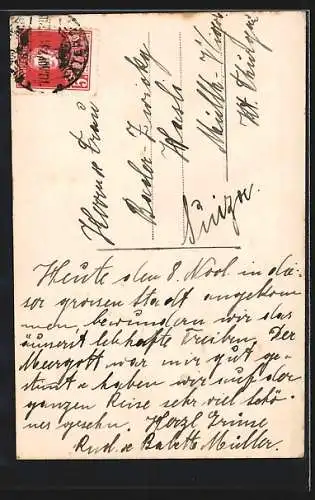 Herrn & Frau
Bader-Zwicky
Hasli
Müllh.-Wigol.
Kt. Thurgau
Suiza.
Heute den 8. Nov. in die-
ser grossen Stadt angekom-
men, bewundern wir das
äusserst lebhafte Treiben. Der
Meergott war mir gut ge-
stimt & haben wir auf der
ganzen Reise sehr viel Schö-
nes gesehn. Herzl. Grüsse
Rud. & Babette Müller.